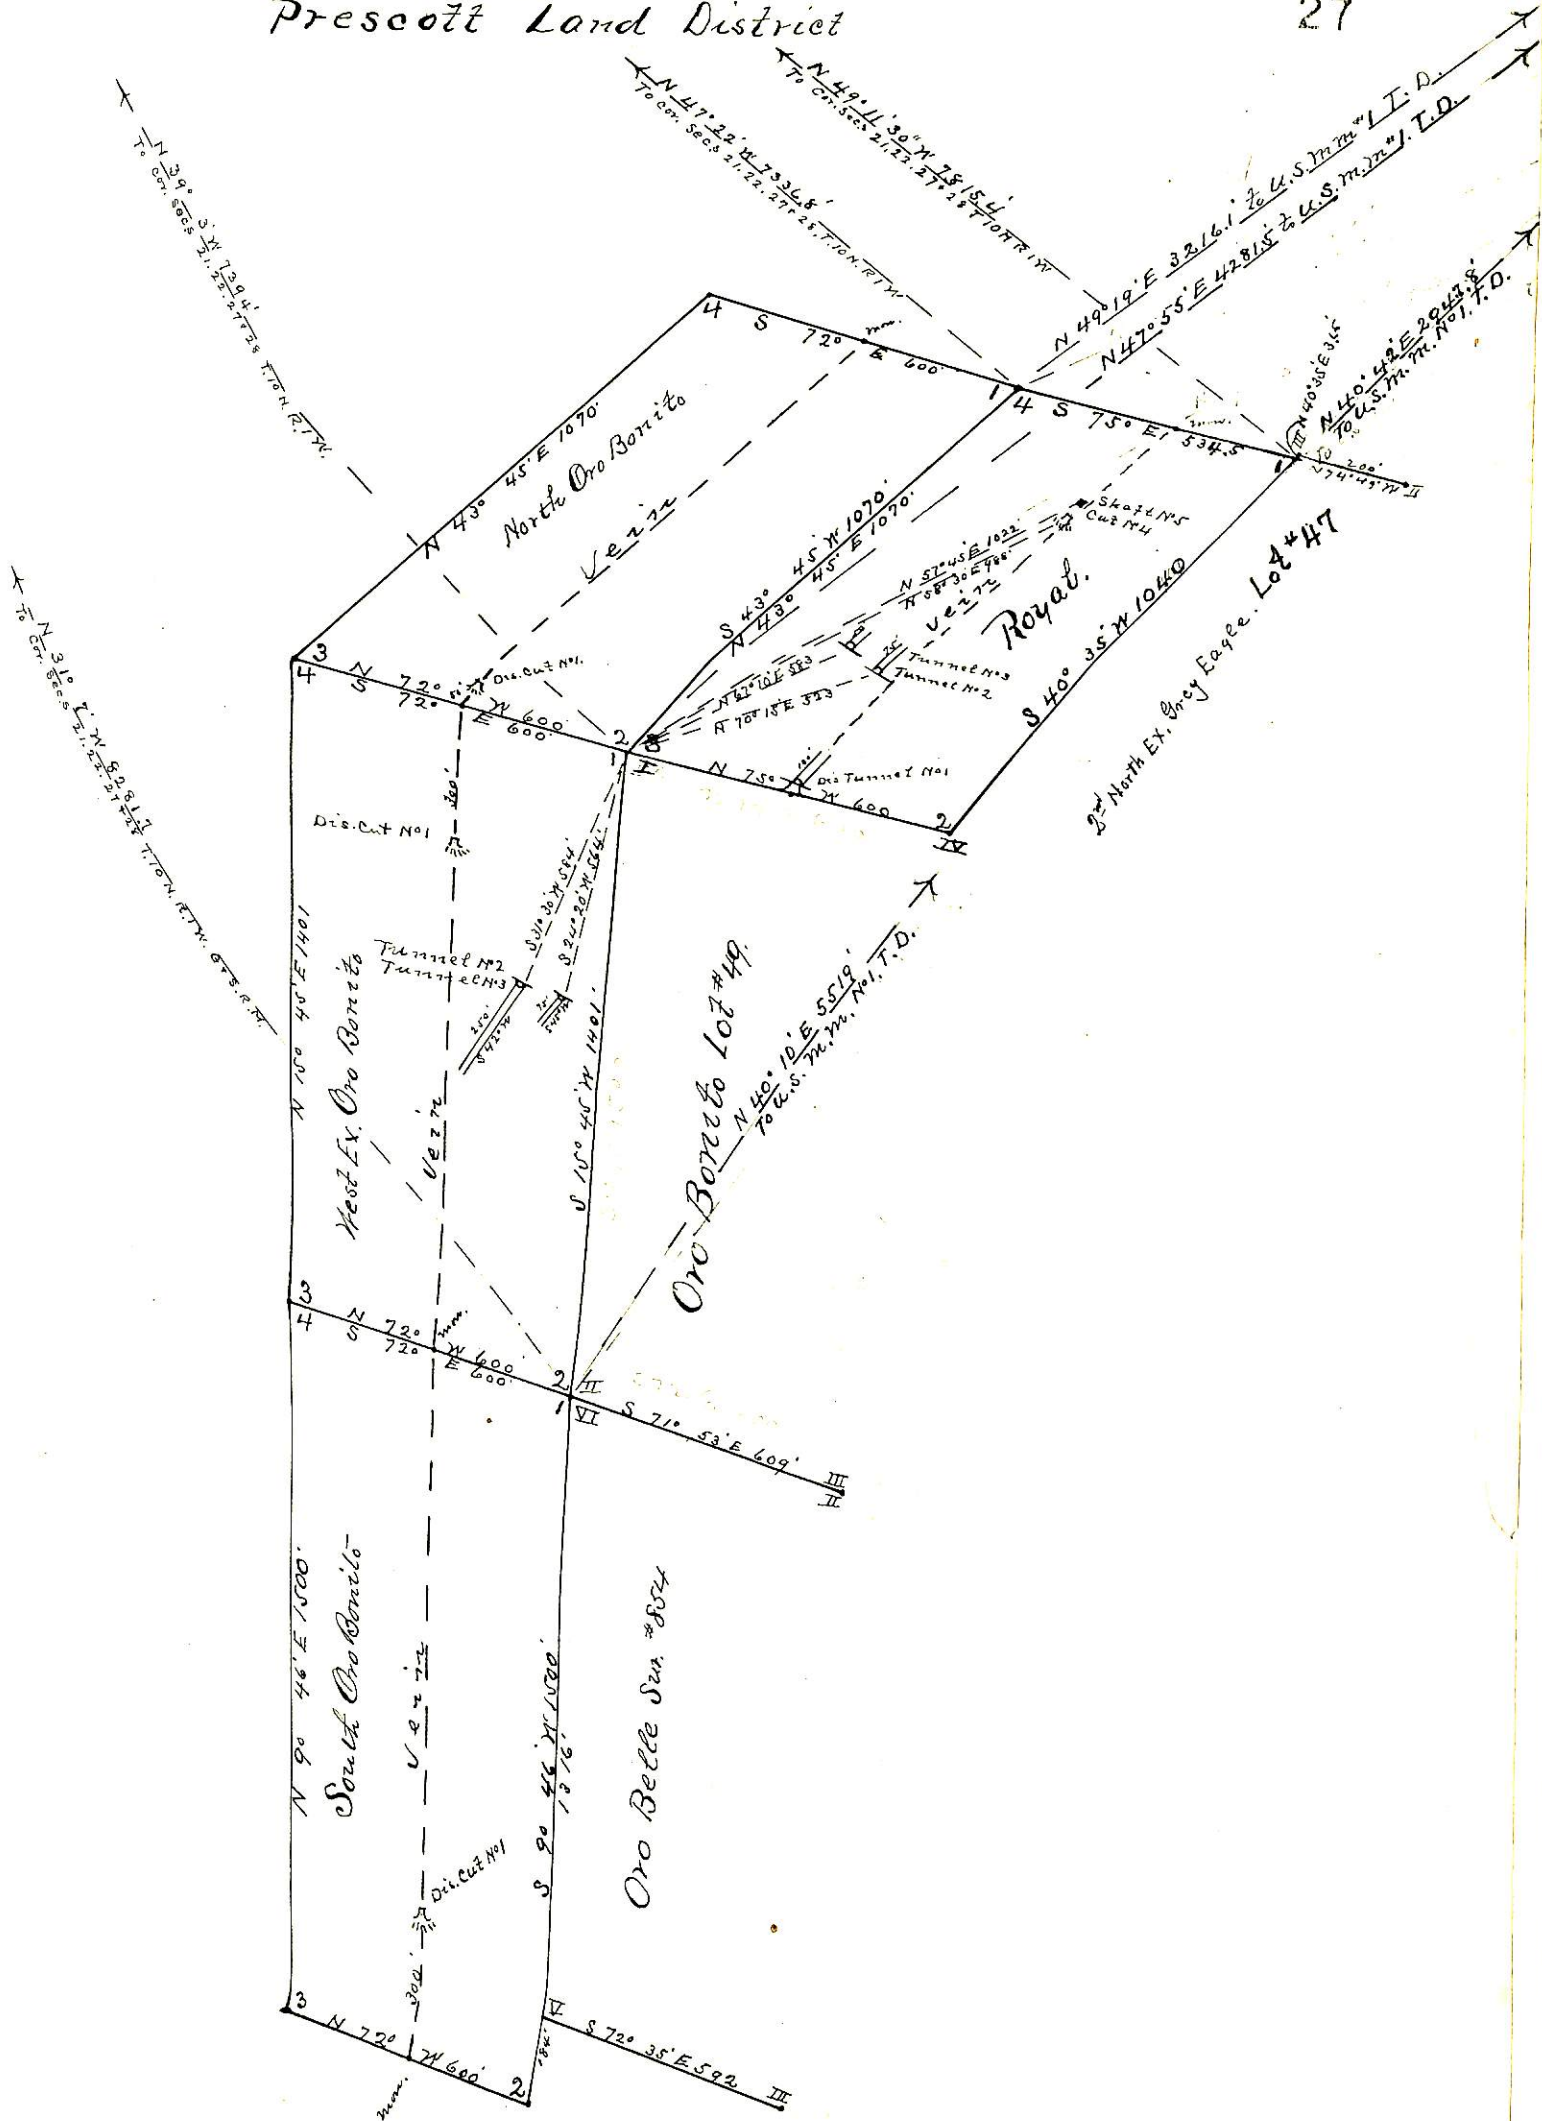 Prescott Land District
27
N 39° 3' W 7394'
To cor. secs 21.22.27+28 T.10 N. R.1 W.
N 47° 22' W 7336.8'
To cor. secs 21.22.27+28, T.10 N. R 1 W
N 49° 11' 30" W 7815.4'
To cor. secs 21.22.27+28 T 10 N R 1 W
N 49° 19' E 3216.1' to U.S. m m #1 T. D.
N 47° 55' E 4281.5' to U.S. m. m #1. T. D.
N 40° 42' E 2047.8'
To U.S. m. m. No 1. T. D.
N 31° 7' W 8281.7
To Cor. Secs 21.22.27+28 T.10 N. R.1 W. G+S.R.M.
4
S 72° E 600'
mon.
1
4
S 75° E 534.5
mon.
1
III
N 40° 35' E 3.5'
50
200'
N 74° 49' W
II
N 43° 45' E 1070'
North Oro Bonito
Vein
S 43° 45' W 1070'
N 43° 45' E 1070'
N 57° 45' E 1022'
N 58° 30' E 988'
Shaft No 5
Cut No 4
Vein
Royal.
Tunnel No 3
Tunnel No 2
25'
N 67° 10' E 583
N 70° 15' E 523
S 40° 35' W 1040
2nd North Ex. Grey Eagle. Lot #47
3
4
N 72° W 600
S 72° E 600'
50'
Dis. Cut No 1.
2
1
3
I
N 75° W 600
100'
Dis Tunnel No 1
2
IV
300'
Dis. Cut No 1
S 31° 30' W 584'
S 24° 20' W 564'
Tunnel No 2
Tunnel No 3
250'
S 42° W
75'
N 15° 45' E 1401
West Ex. Oro Bonito
Vein
S 15° 45' W 1401'
Oro Bonito Lot #49.
N 40° 10' E 5519'
To U.S. m. m. No 1, T. D.
3
4
N 72° W 600
S 72° E 600'
mon.
2
III
1
VI
S 71° 53' E 609'
III
II
N 9° 46' E 1500'
South Oro Bonito
Vein
S 9° 46' W 1500'
1316'
Oro Belle Sur. #854
Dis. Cut No 1
300'
3
N 72° W 600'
mon.
2
184'
V
S 72° 35' E 592
III